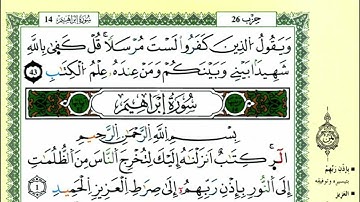 سُورَةُ إِبْرَاهِيم 14
حزب 26
وَيَقُولُ الَّذِينَ كَفَرُوا لَسْتَ مُرْسَلًا قُلْ كَفَىٰ بِاللَّهِ
شَهِيدًا بَيْنِي وَبَيْنَكُمْ وَمَنْ عِندَهُ عِلْمُ الْكِتَابِ 43
سُورَةُ إِبْرَاهِيم
بِسْمِ اللَّهِ الرَّحْمَٰنِ الرَّحِيمِ
الٓر كِتَابٌ أَنزَلْنَاهُ إِلَيْكَ لِتُخْرِجَ النَّاسَ مِنَ الظُّلُمَاتِ
إِلَى النُّورِ بِإِذْنِ رَبِّهِمْ إِلَىٰ صِرَاطِ الْعَزِيزِ الْحَمِيدِ 1
بِإِذْنِ رَبِّهِمْ
بتيسيره وتوفيقه
العزيز